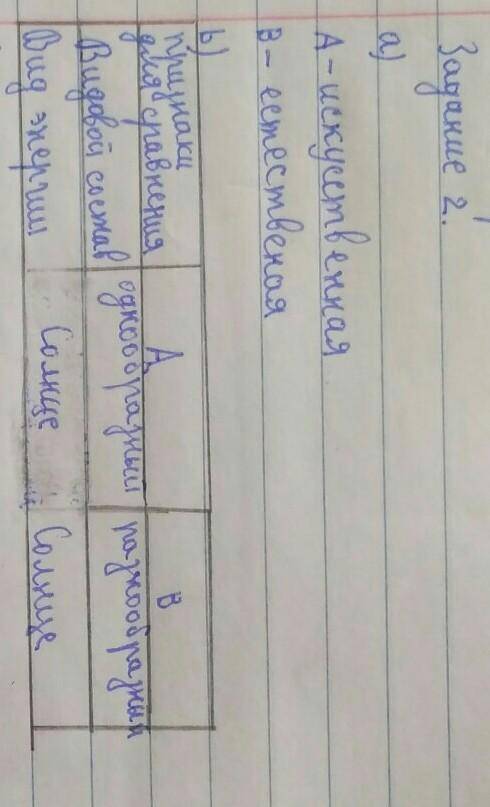 Задание 2.
a)
А - искусственная
В - естественая
b)
признаки для сравнения А В
Видовой состав однообразный разнообразный
Вид энергии Солнце Солнце